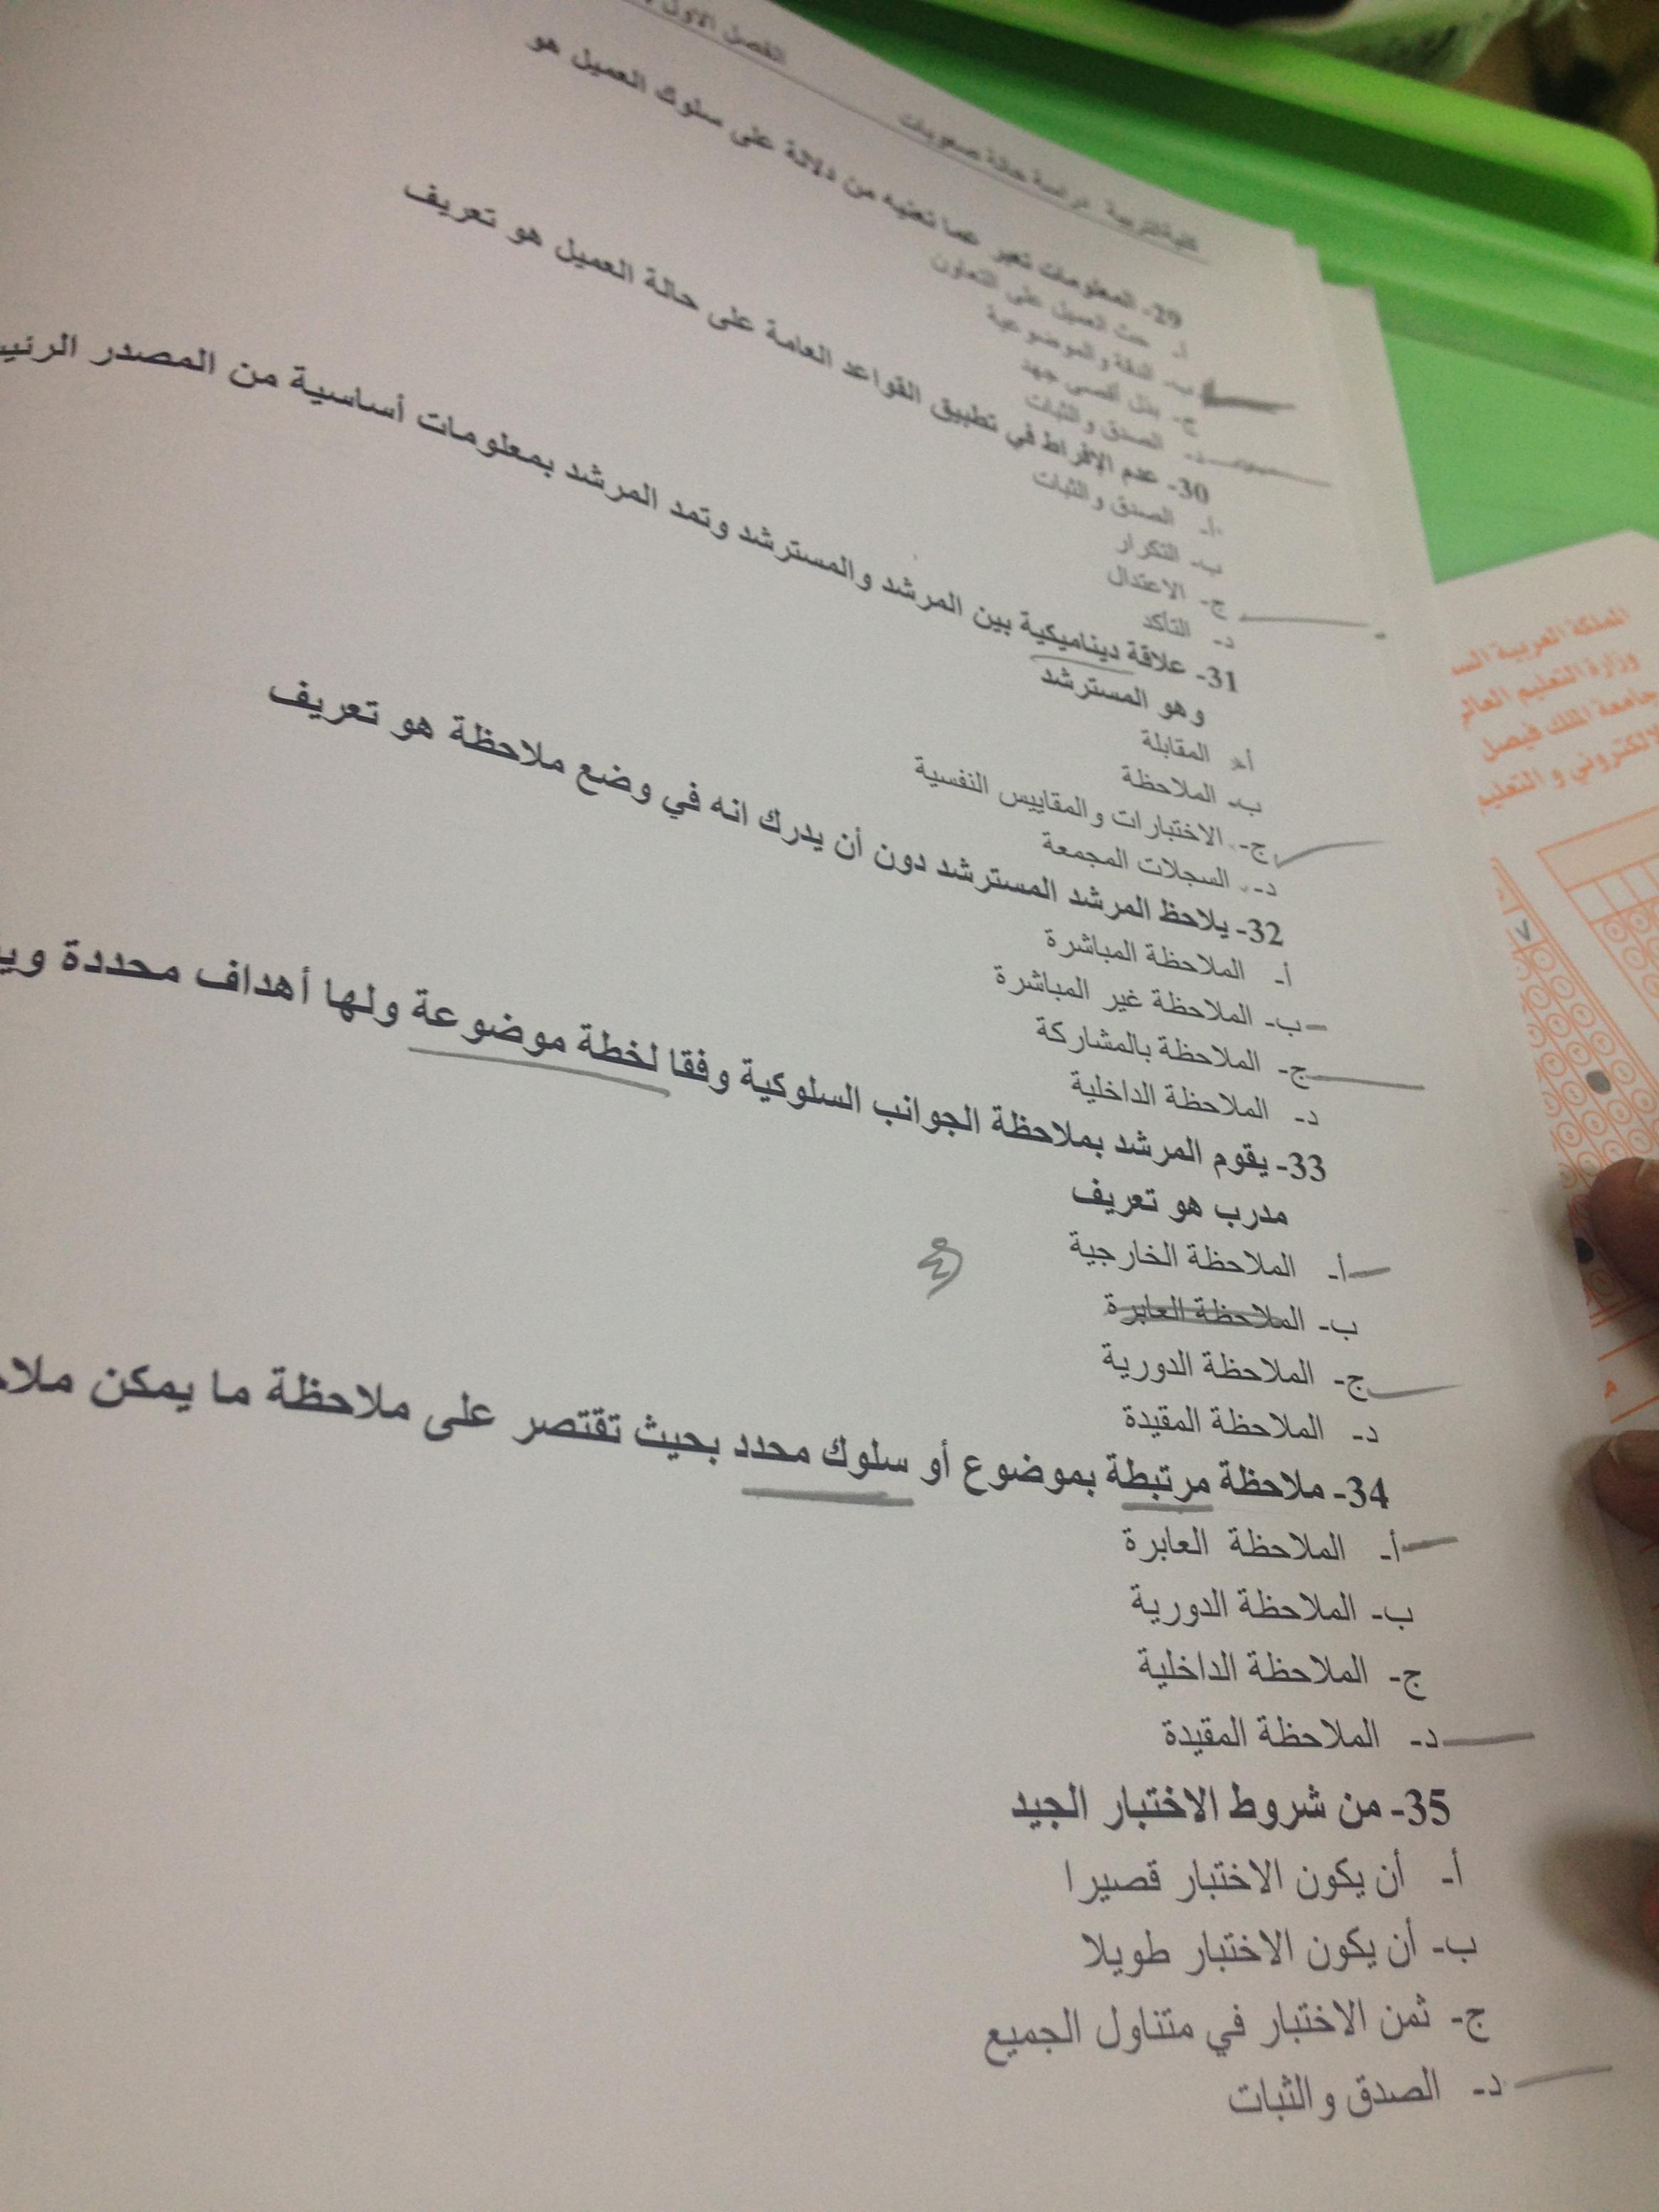 الفصل الأول
كلية التربية دراسة حالة صعوبات
29- المعلومات تعبر عما تعنيه من دلالة على سلوك العميل هو
أ- حث العميل على التعاون
ب- الدقة والموضوعية
ج- بذل أقصى جهد
د- الصدق والثبات
30- عدم الإفراط في تطبيق القواعد العامة على حالة العميل هو تعريف
أ- الصدق والثبات
ب- التكرار
ج- الاعتدال
د- التأكد
31- علاقة ديناميكية بين المرشد والمسترشد وتمد المرشد بمعلومات أساسية من المصدر
وهو المسترشد
أ- المقابلة
ب- الملاحظة
ج- الاختبارات والمقاييس النفسية
د- السجلات المجمعة
32- يلاحظ المرشد المسترشد دون أن يدرك انه في وضع ملاحظة هو تعريف
أ- الملاحظة المباشرة
ب- الملاحظة غير المباشرة
ج- الملاحظة بالمشاركة
د- الملاحظة الداخلية
33- يقوم المرشد بملاحظة الجوانب السلوكية وفقا لخطة موضوعة ولها أهداف محددة
مدرب هو تعريف
أ- الملاحظة الخارجية
ب- الملاحظة العابرة
ج- الملاحظة الدورية
د- الملاحظة المقيدة
34- ملاحظة مرتبطة بموضوع أو سلوك محدد بحيث تقتصر على ملاحظة ما يمكن
أ- الملاحظة العابرة
ب- الملاحظة الدورية
ج- الملاحظة الداخلية
د- الملاحظة المقيدة
35- من شروط الاختبار الجيد
أ- أن يكون الاختبار قصيرا
ب- أن يكون الاختبار طويلا
ج- ثمن الاختبار في متناول الجميع
د- الصدق والثبات
المملكة العربية
وزارة التعليم
جامعة الملك فيصل